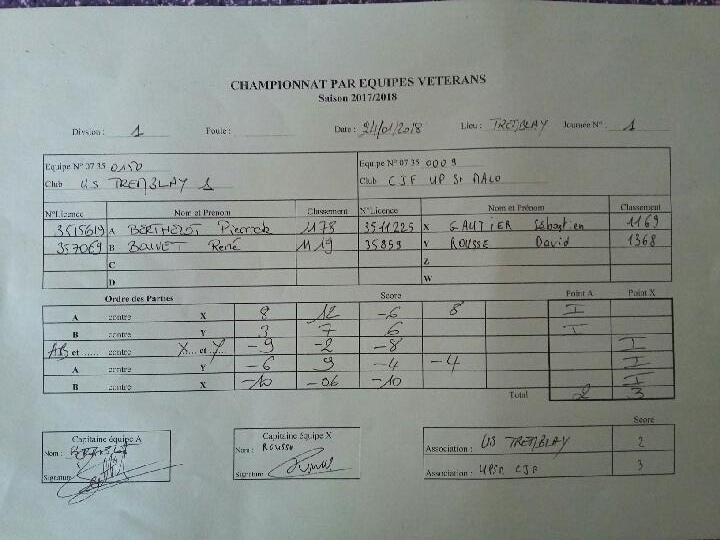 CHAMPIONNAT PAR EQUIPES VETERANS
Saison 2017/2018
Division : 1 Poule : Date : 24/01/2018 Lieu : TREMBLAY Journée N° 1
Equipe N° 07 35 0150 Equipe N° 07 35 0009
Club US TREMBLAY 1 Club CJF UP St MALO
N°Licence Nom et Prénom Classement N°Licence Nom et Prénom Classement
3515619 A BERTHELOT Pierrick 1178 3511225 X GAUTIER Sébastien 1169
357069 B BOUVET René 1119 35859 Y ROUSSE David 1368
C Z
D W
Ordre des Parties Score Point A Point X
A contre X 8 12 -6 8 I
B contre Y 3 7 6 I
AB et ...... X... et Y... -9 -2 -8 I
A contre Y -6 9 -4 -4 I
B contre X -10 -06 -10 I
Total 2 3
Capitaine équipe A Capitaine équipe X Score
Nom : Nom : ROUSSE Association : US TREMBLAY 2
Signature Signature Association : UPSM CJF 3